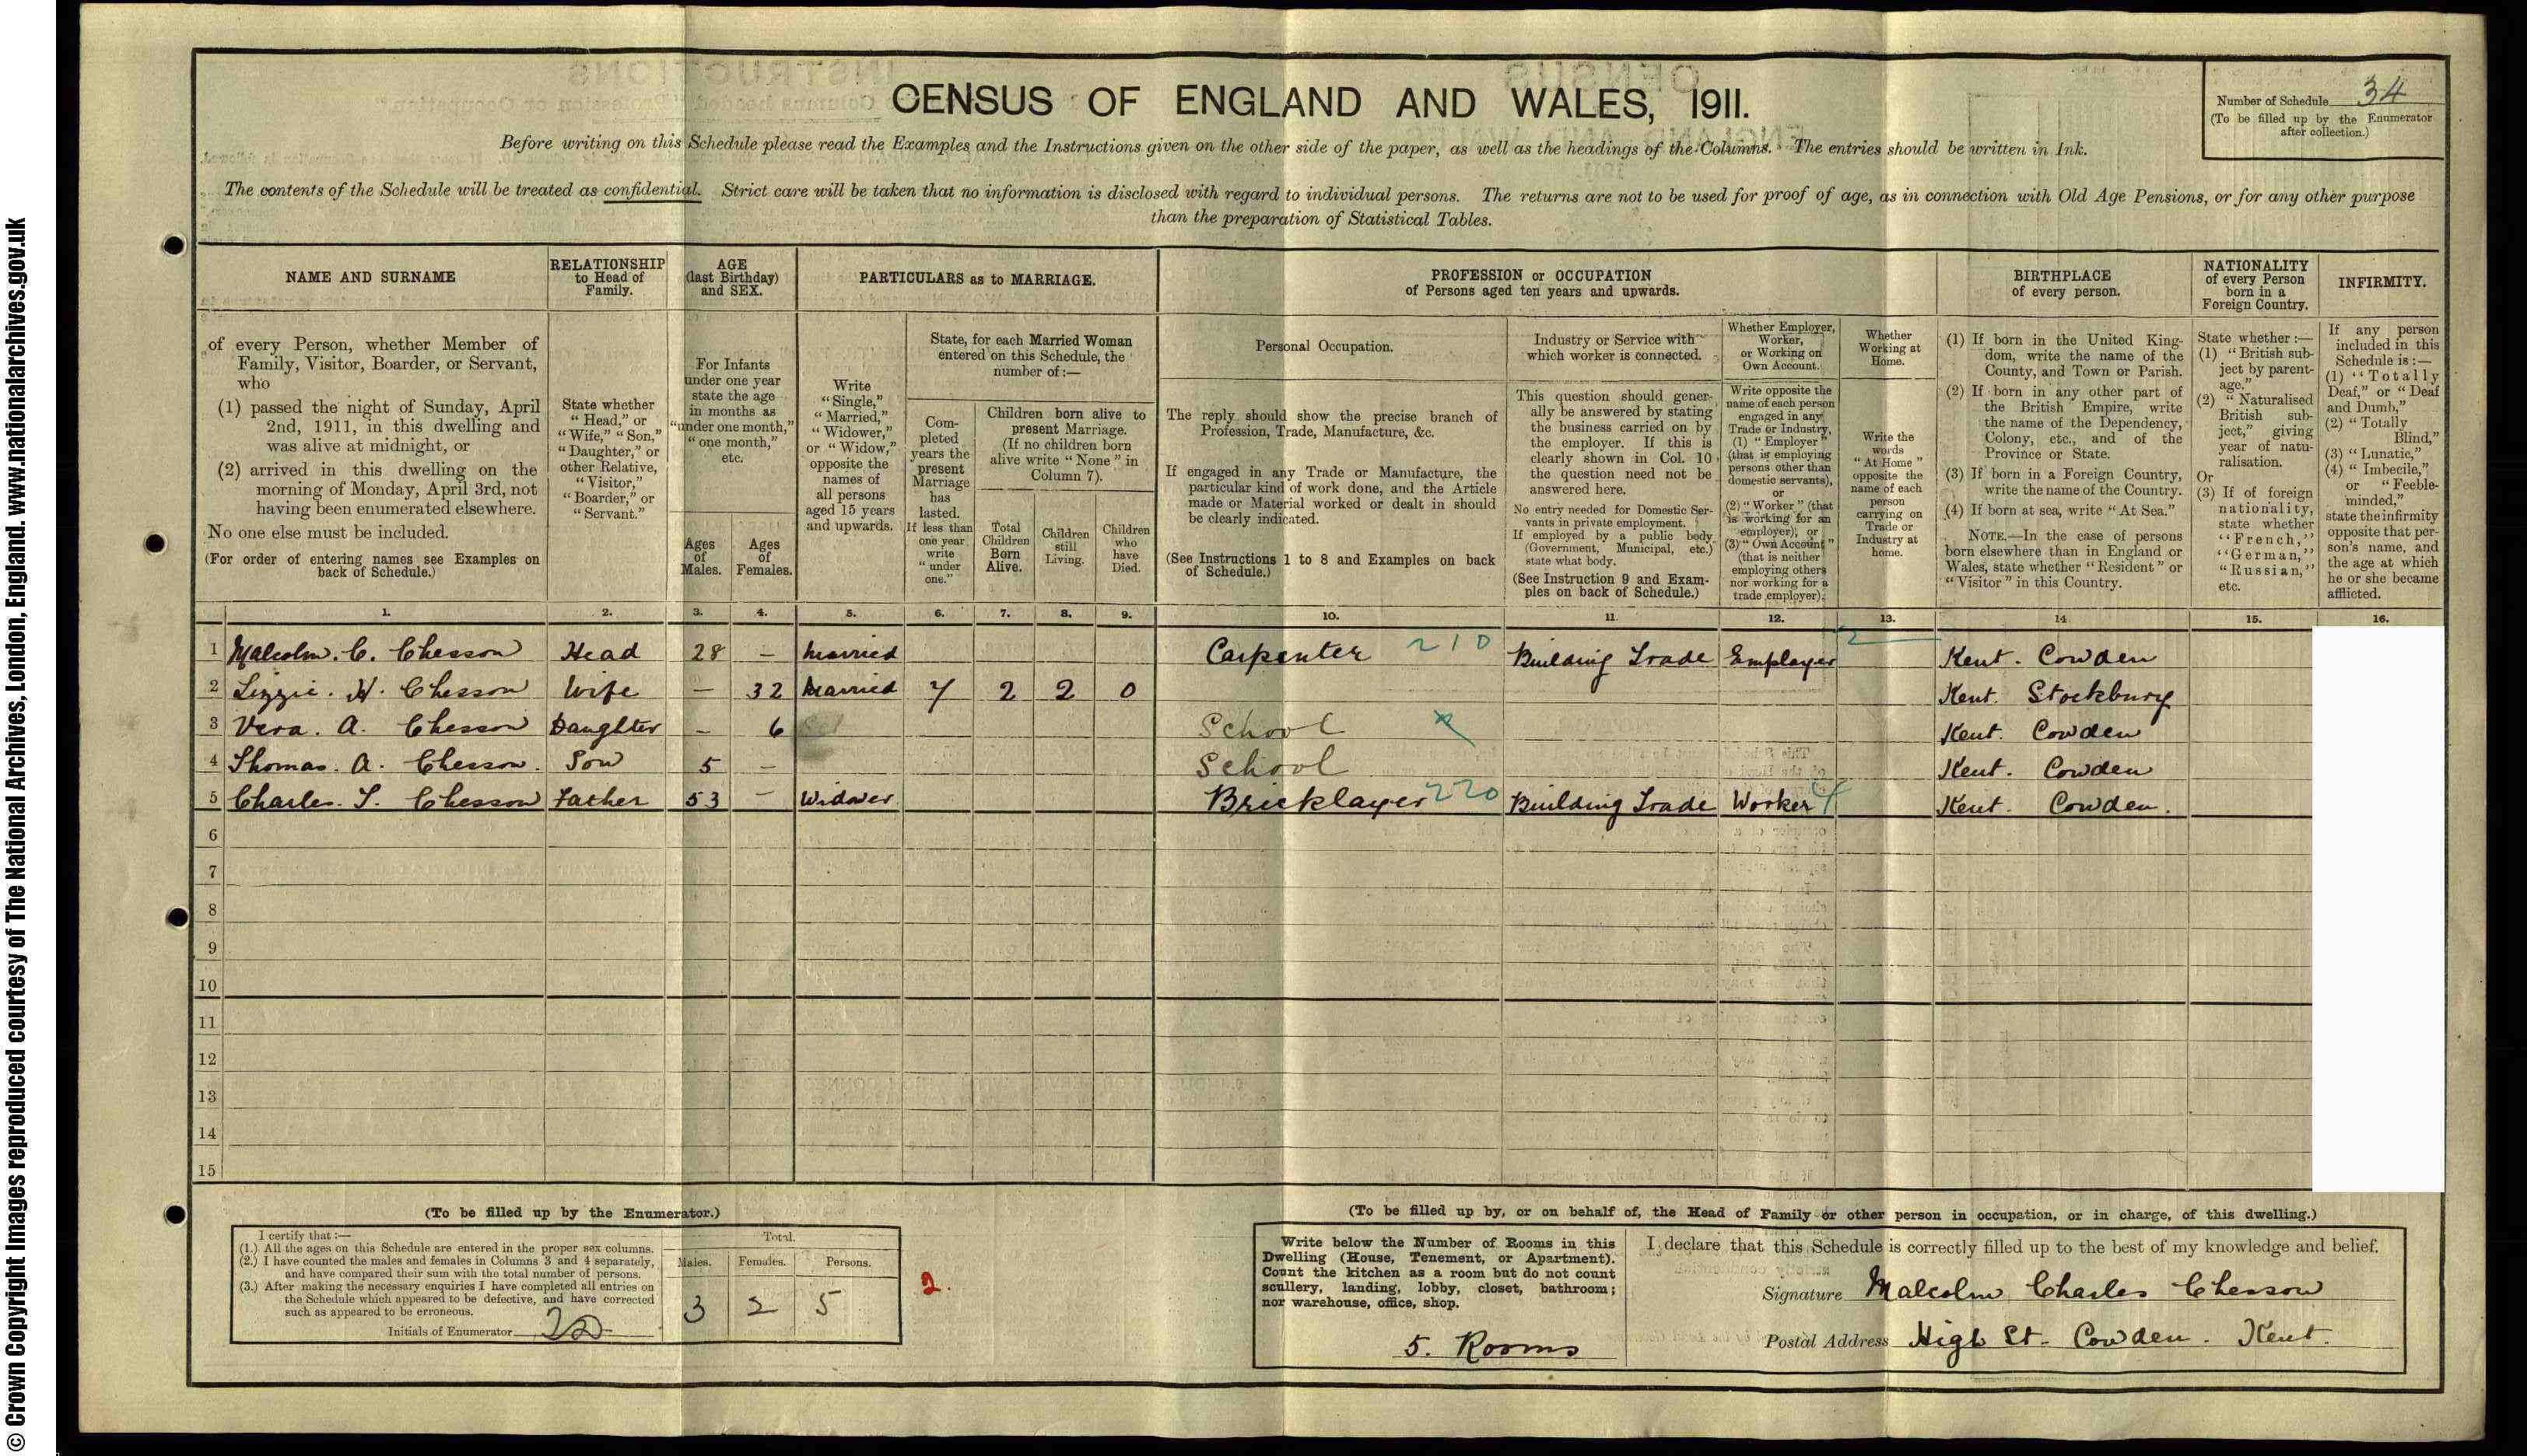 © Crown Copyright Images reproduced courtesy of The National Archives, London, England. www.nationalarchives.gov.uk
CENSUS OF ENGLAND AND WALES, 1911.
Number of Schedule 34
(To be filled up by the Enumerator
after collection.)
Before writing on this Schedule please read the Examples and the Instructions given on the other side of the paper, as well as the headings of the Columns. The entries should be written in Ink.
The contents of the Schedule will be treated as confidential. Strict care will be taken that no information is disclosed with regard to individual persons. The returns are not to be used for proof of age, as in connection with Old Age Pensions, or for any other purpose
than the preparation of Statistical Tables.
NAME AND SURNAME
of every Person, whether Member of
Family, Visitor, Boarder, or Servant,
who
(1) passed the night of Sunday, April
2nd, 1911, in this dwelling and
was alive at midnight, or
(2) arrived in this dwelling on the
morning of Monday, April 3rd, not
having been enumerated elsewhere.
No one else must be included.
(For order of entering names see Examples on
back of Schedule.)
RELATIONSHIP
to Head of
Family.
State whether
"Head," or
"Wife," "Son,"
"Daughter," or
other Relative,
"Visitor,"
"Boarder," or
"Servant."
AGE
(last Birthday)
and SEX.
For Infants
under one year
state the age
in months as
"under one month,"
"one month,"
etc.
Ages
of
Males.
Ages
of
Females.
PARTICULARS as to MARRIAGE.
Write
"Single,"
"Married,"
"Widower,"
or "Widow,"
opposite the
names of
all persons
aged 15 years
and upwards.
State, for each Married Woman
entered on this Schedule, the
number of:—
Com-
pleted
years the
present
Marriage
has
lasted.
If less than
one year
write
"under
one."
Children born alive to
present Marriage.
(If no children born
alive write "None" in
Column 7).
Total
Children
Born
Alive.
Children
still
Living.
Children
who
have
Died.
PROFESSION or OCCUPATION
of Persons aged ten years and upwards.
Personal Occupation.
The reply should show the precise branch of
Profession, Trade, Manufacture, &c.
If engaged in any Trade or Manufacture, the
particular kind of work done, and the Article
made or Material worked or dealt in should
be clearly indicated.
(See Instructions 1 to 8 and Examples on back
of Schedule.)
Industry or Service with
which worker is connected.
This question should gener-
ally be answered by stating
the business carried on by
the employer. If this is
clearly shown in Col. 10
the question need not be
answered here.
No entry needed for Domestic Ser-
vants in private employment.
If employed by a public body
(Government, Municipal, etc.)
state what body.
(See Instruction 9 and Exam-
ples on back of Schedule.)
Whether Employer,
Worker,
or Working on
Own Account.
Write opposite the
name of each person
engaged in any
Trade or Industry,
(1) "Employer"
(that is employing
persons other than
domestic servants),
or
(2) "Worker" (that
is working for an
employer), or
(3) "Own Account"
(that is neither
employing others
nor working for a
trade employer).
Whether
Working at
Home.
Write the
words
"At Home"
opposite the
name of each
person
carrying on
Trade or
Industry at
home.
BIRTHPLACE
of every person.
(1) If born in the United King-
dom, write the name of the
County, and Town or Parish.
(2) If born in any other part of
the British Empire, write
the name of the Dependency,
Colony, etc., and of the
Province or State.
(3) If born in a Foreign Country,
write the name of the Country.
(4) If born at sea, write "At Sea."
NOTE.—In the case of persons
born elsewhere than in England or
Wales, state whether "Resident" or
"Visitor" in this Country.
NATIONALITY
of every Person
born in a
Foreign Country.
State whether:—
(1) "British sub-
ject by parent-
age."
(2) "Naturalised
British sub-
ject," giving
year of natu-
ralisation.
Or
(3) If of foreign
nationality,
state whether
"French,"
"German,"
"Russian,"
etc.
INFIRMITY.
If any person
included in this
Schedule is:—
(1) "Totally
Deaf," or "Deaf
and Dumb,"
(2) "Totally
Blind,"
(3) "Lunatic,"
(4) "Imbecile,"
or "Feeble-
minded,"
state the infirmity
opposite that per-
son's name, and
the age at which
he or she became
afflicted.
1. 2. 3. 4. 5. 6. 7. 8. 9. 10. 11. 12. 13. 14 15. 16.
1 Malcolm. C. Chesson Head 28 – Married Carpenter 210 Building Trade Employer 2 Kent. Cowden
2 Lizzie. H. Chesson Wife – 32 Married 7 2 2 0 Kent. Stockbury
3 Vera. A. Chesson Daughter – 6 School Kent. Cowden
4 Thomas. A. Chesson. Son 5 – School Kent. Cowden
5 Charles. T. Chesson Father 53 – Widower Bricklayer 220 Building Trade Worker Kent. Cowden.
6
7
8
9
10
11
12
13
14
15
(To be filled up by the Enumerator.)
I certify that:—
(1.) All the ages on this Schedule are entered in the proper sex columns.
(2.) I have counted the males and females in Columns 3 and 4 separately,
and have compared their sum with the total number of persons.
(3.) After making the necessary enquiries I have completed all entries on
the Schedule which appeared to be defective, and have corrected
such as appeared to be erroneous.
Initials of Enumerator
Total.
Males. Females. Persons.
3 2 5
2.
(To be filled up by, or on behalf of, the Head of Family or other person in occupation, or in charge, of this dwelling.)
Write below the Number of Rooms in this
Dwelling (House, Tenement, or Apartment).
Count the kitchen as a room but do not count
scullery, landing, lobby, closet, bathroom;
nor warehouse, office, shop.
5. Rooms
I declare that this Schedule is correctly filled up to the best of my knowledge and belief.
Signature Malcolm Charles Chesson
Postal Address High St. Cowden. Kent.